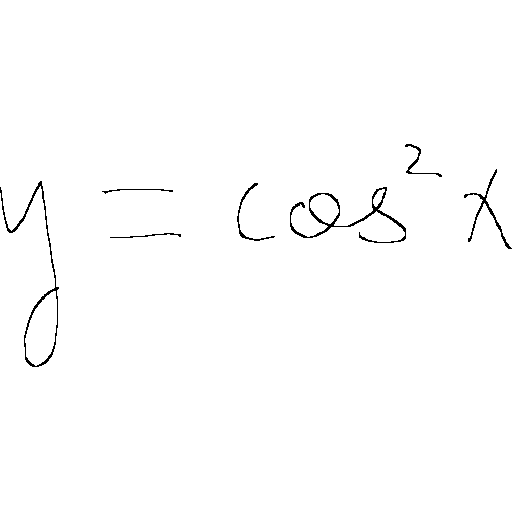 y = cos² x